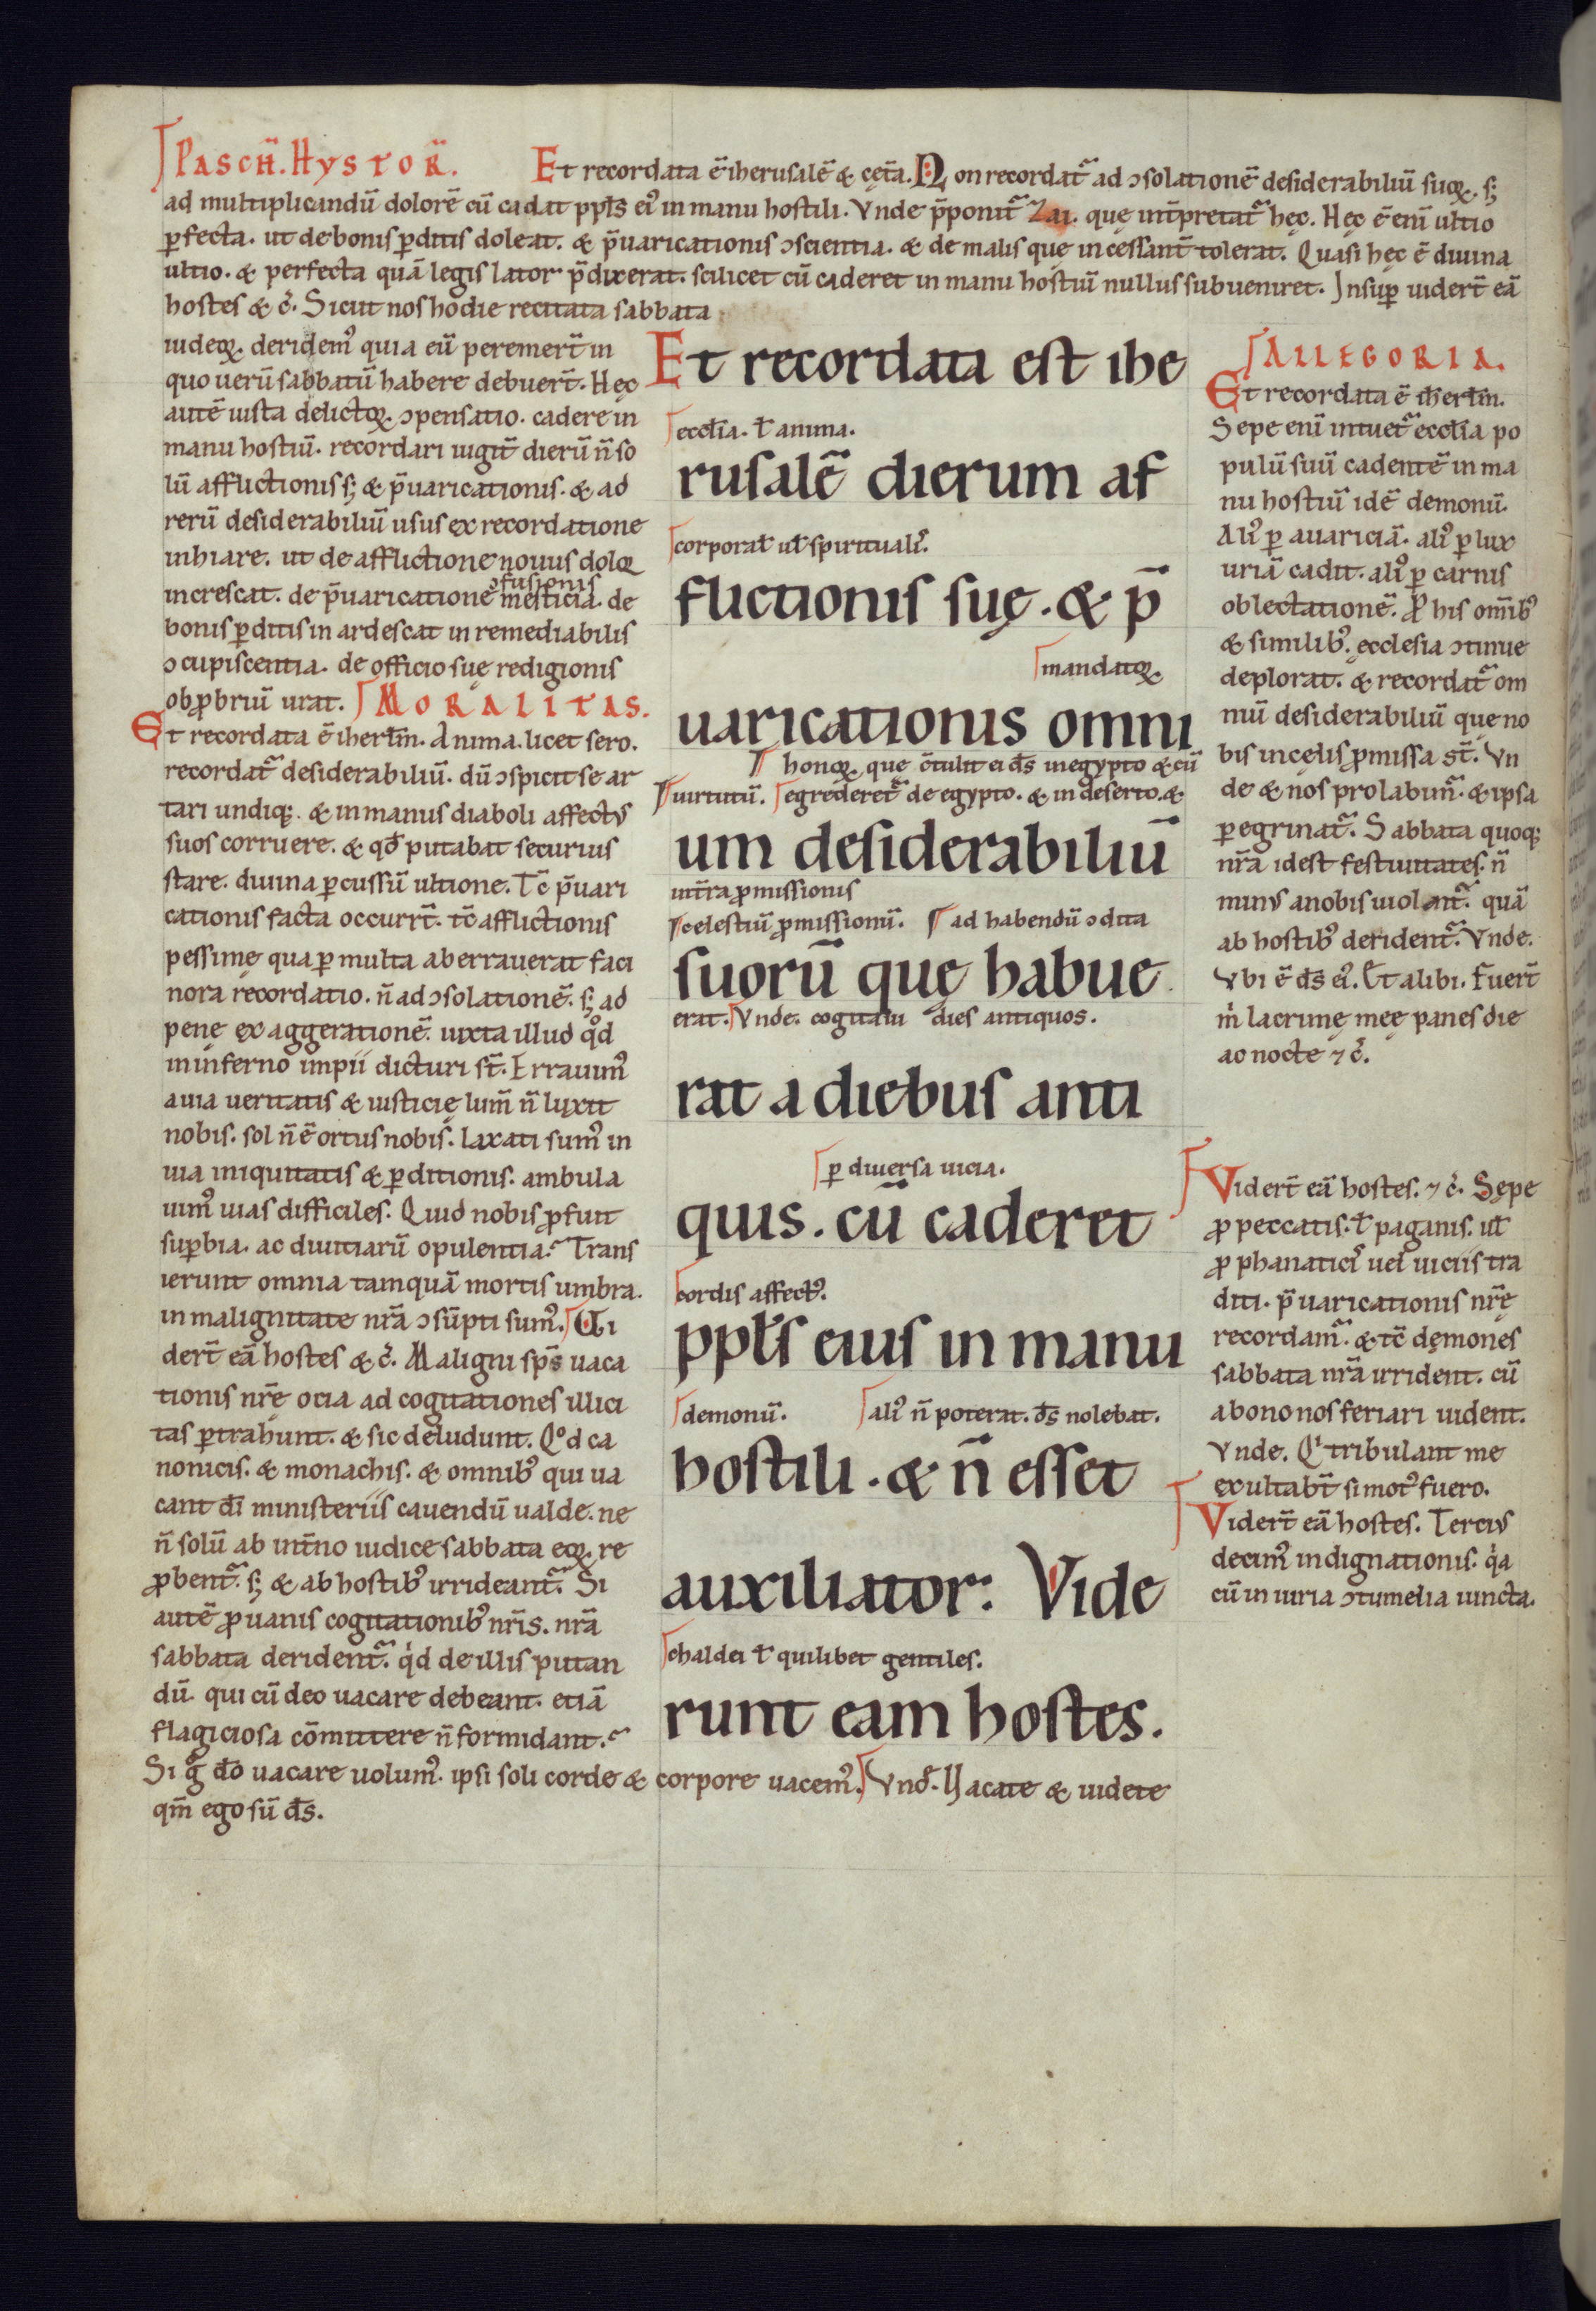 Pasch̄. Hystor̄. Et recordata ē iherusalē & cęt̄a. Non recordat᷑ ad ɔsolationē desiderabiliū suoꝝ. sꝫ
ad multiplicandū dolorē cū cadat ppl̄s ei᷒ in manu hostili. Vnde p̄ponit᷑ Zai. quę int̄pretat᷑ hęc. Hęc ē eni ultio
ꝑfecta. ut de bonis ꝑditis doleat. & p̄uaricationis ɔscientia. & de malis que incessant̄ tolerat. Quasi hęc ē diuina
ultio. & perfecta quā legis lator p̄dixerat. scilicet cū caderet in manu hostiū nullus subueniret. Insuꝑ uidert̄ eā
hostes & c̄. Sicut nos hodie recitata sabbata
iudeoꝝ. deridem᷒ quia eū peremert̄ in
quo uerū sabbatū habere debuert̄. Hęc
autē iusta delictoꝝ. ɔpensatio. cadere in
manu hostiū. recordari iugit̄ dierū n̄ so
lū afflictionis sꝫ & p̄uaricationis. & ad
rerū desiderabiliū usus ex recordatione
inhiare. ut de afflictione nouus doloꝛ
ɔfusionis
increscat. de p̄uaricatione mesticia. de
bonis ꝑditis in ardescat inremediabilis
ɔcupiscentia. de officio suę redigionis
obꝓbriū urat. Moralitas.
Et recordata ē iherl̄m. Anima. licet sero.
recordat᷑ desiderabiliū. dū ɔspicit se ar
tari undiqꝫ. & in manus diaboli affectus
suos corruere. & qđ putabat securius
stare. diuina ꝑcussū ultione. Tc̄ p̄uari
cationis facta occurrt̄. tc̄ afflictionis
pessimę qua ꝑ multa aberrauerat faci
nora recordatio. n̄ ad ɔsolationē. sꝫ ad
penę exaggerationē. iuxta illud qͦd
in inferno impii dicturi st̄. Errauim᷒
a uia ueritatis & iusticię lum̄ n̄ luxit
nobis. sol n̄ ē ortus nobis. Laxati sum᷒ in
uia iniquitatis & ꝑditionis. ambula
uim᷒ uias difficiles. Quid nobis ꝓfuit
suꝑbia. ac diuitiarū opulentia? Trans
ierunt omnia tamquā mortis umbra.
in malignitate nr̄a ɔsūpti sum᷒. Vi
dert̄ eā hostes & c̄. Maligni sp̄s uaca
tionis nr̄ę ocia ad cogitationes illici
tas ꝑtrahunt. & sic deludunt. Qͦd ca
nonicis. & monachis. & omnib᷒ qui ua
cant dī ministeriis cauendū ualde. ne
n̄ solū ab int̄no iudice sabbata eoꝝ. re
ꝓbent᷑. sꝫ & ab hostib᷒ irrideant᷑. Si
autē ꝓ uanis cogitationib᷒ nr̄is. nr̄a
sabbata derident᷑. qͥd de illis putan
dū. qui cū deo uacare debeant. etiā
flagiciosa cōmittere n̄ formidant?
Si gͦ dō uacare uolum᷒. ipsi soli corde & corpore uacem᷒. Vnđ. Vacate & uidete
qm̄ ego sū d̄s.
Et recordata est ihe
ecctīa. ł anima.
rusalē dierum af
corporał uł spirituali᷒.
flictionis suę. & p̄
mandatoꝝ
uaricationis omni
honoꝝ que ɔ̄tulit ei d̄s in egypto & cū
uirtutū. egrederet᷑ de egypto. & in deserto. &
um desiderabiliū
int̄ra ꝓmissionis
celestiū ꝓmissionū. ad habendū ɔdita
suorū quę habue
erat. Vnde. cogitaui dies antiquos.
rat a diebus anti
ꝑ diuersa uicia.
quis. cū caderet
cordis affect᷒.
ppl̄s eius in manu
demonū. ali᷒ n̄ poterat. d̄s nolebat.
hostili. & n̄ esset
auxiliator: Vide
chaldei ł quilibet gentiles.
runt eam hostes.
Allegoria.
Et recordata ē iherl̄m.
Sepe eni intuet᷑ ecctīa po
pulū suū cadentē in ma
nu hostiū idē demonū.
Ali᷒ ꝑ auariciā. ali᷒ ꝑ lux
uriā cadit. ali᷒ ꝑ carnis
oblectationē. Ꝓ his om̄ib᷒
& similib᷒. ęcclesia ɔtinue
deplorat. & recordat᷑ om
niū desiderabiliū que no
bis in cęlis ꝓmissa st̄. Vn
de & nos pro labim᷑. & ipsa
ꝑegrinat᷑. Sabbata quoqꝫ
nr̄a idest festiuitates. n̄
minus a nobis uiolant᷑. quā
ab hostib᷒ derident᷑. Vnde.
Vbi ē d̄s ei᷒. Et alibi. Fuert̄
m̄ lacrimę męe panes die
ac nocte ⁊ c̄.
Vidert̄ eā hostes. ⁊ c̄. Sępe
ꝓ peccatis. ł paganis. uł
ꝓ phanatici᷒ uel uiciis tra
diti. p̄uaricationis nr̄ę
recordam᷑. & tc̄ dęmones
sabbata nr̄a irrident. cū
a bono nos feriari uident.
Vnde. Qͥ tribulant me
exultabt̄ si mot᷒ fuero.
Vidert̄ eā hostes. Tercius
decim᷒ indignationis. qͥa
cū iniuria ɔtumelia iuncta.